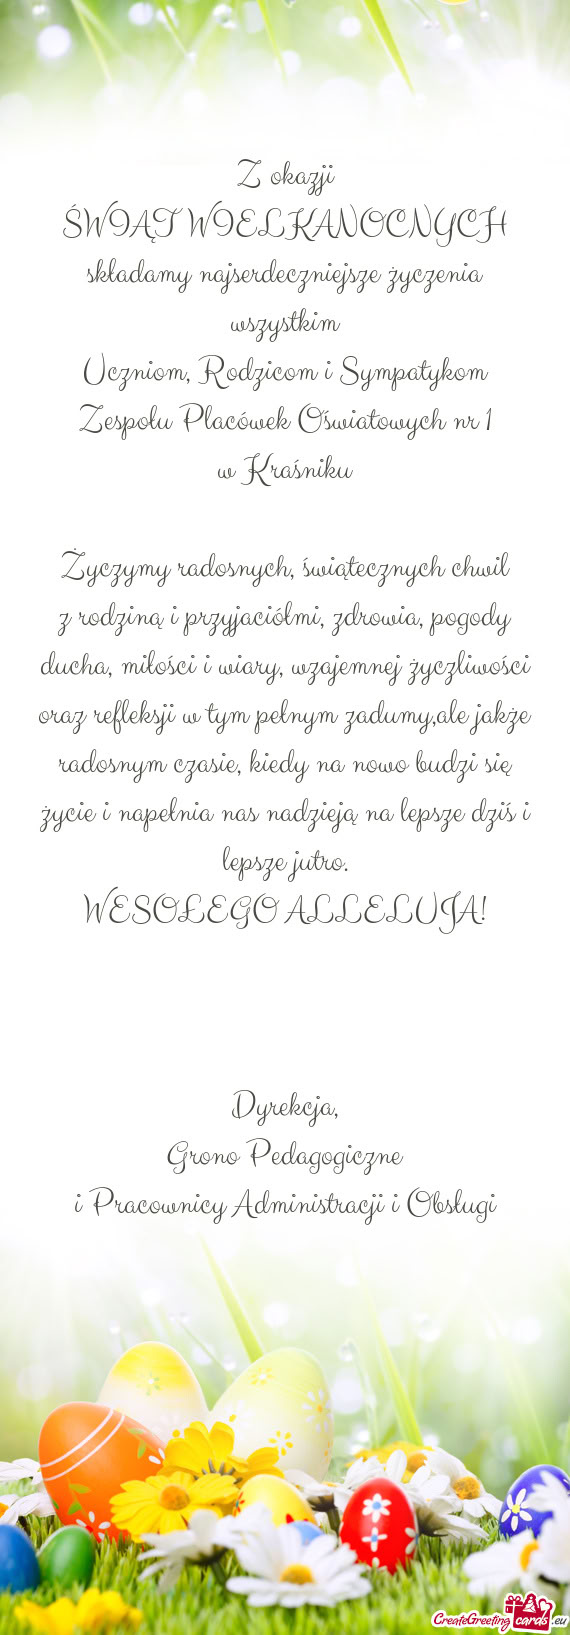 Z okazji
ŚWIĄT WIELKANOCNYCH
składamy najserdeczniejsze życzenia
wszystkim
Uczniom, Rodzicom i Sympatykom
Zespołu Placówek Oświatowych nr 1
w Kraśniku
Życzymy radosnych, świątecznych chwil
z rodziną i przyjaciółmi, zdrowia, pogody
ducha, miłości i wiary, wzajemnej życzliwości
oraz refleksji w tym pełnym zadumy,ale jakże
radosnym czasie, kiedy na nowo budzi się
życie i napełnia nas nadzieją na lepsze dziś i
lepsze jutro.
WESOŁEGO ALLELUJA!
Dyrekcja,
Grono Pedagogiczne
i Pracownicy Administracji i Obsługi
CreateGreeting cards .eu